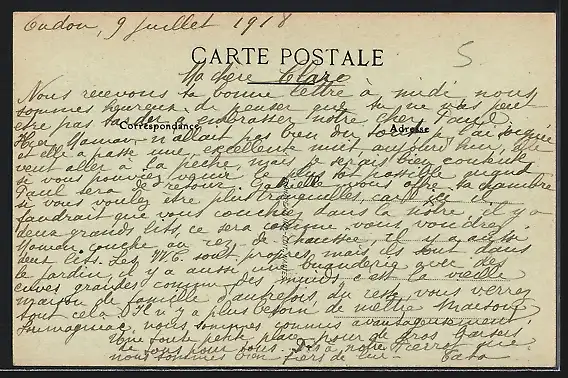 Oudon, 9 Juillet 1918
CARTE POSTALE
5
Ma chère Claze
Nous recevons ta bonne lettre à midi, nous
sommes heureux de penser que tu ne vas peut
être pas tarder à embrasser notre cher Paul.
Correspondance
Adresse
Hier Maman n'allait pas bien du tout, je l'ai soignée
et elle a passé une excellente nuit aujourd'hui, elle
veut aller à la pêche, mais je serais bien contente
si vous pouviez venir le plus tôt possible quand
Paul sera de retour. Gabrielle vous offre sa chambre
si vous voulez être plus tranquilles, car ici il
faudrait que vous couchiez dans la nôtre, il y a
deux grands lits, ce sera comme vous voudrez.
Maman couche au rez-de-chaussée, il y a aussi
deux lits. Les W.C. sont propres, mais ils sont dans
le jardin, il y a aussi une buanderie avec des
cuves grandes comme des muids, c'est la vieille
maison de famille d'autrefois, du reste vous verrez
tout cela. Il n'y a plus besoin de mettre Maison
nous sommes connus avantageusement
Une toute petite place pour de gros baisers
pour vous tous. Dis à notre Pierrot que
nous sommes bien fiers de lui -